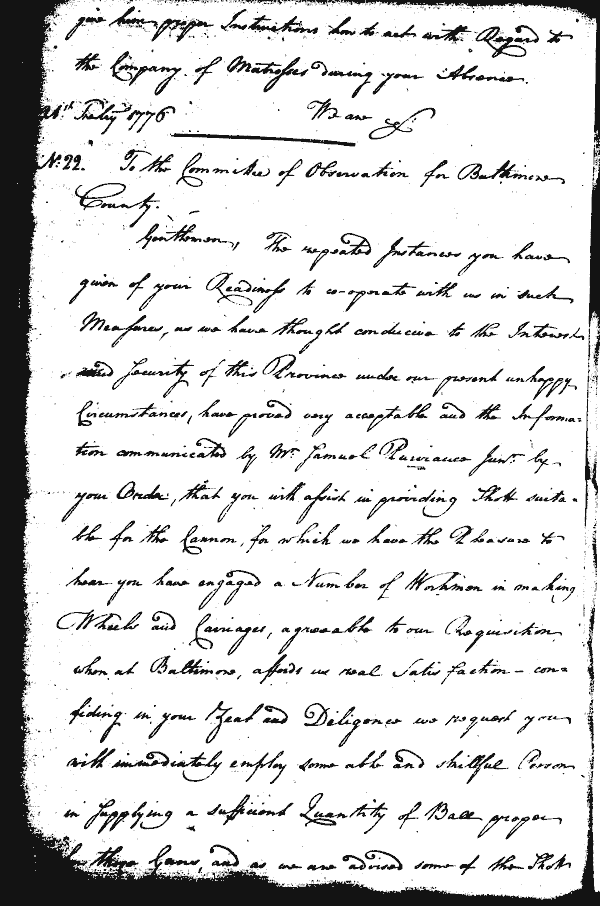 give him proper Instructions how to act with Regard to
the Company of Matrosses during your Absence.
21st Feb'ry 1776 We are &c
No. 22. To the Committee of Observation for Baltimore
County.
Gentlemen, The repeated Instances you have
given of your Readiness to co-operate with us in such
Measures, as we have thought conducive to the Interest
and Security of this Province under our present unhappy
Circumstances, have proved very acceptable and the Informa-
tion communicated by Mr. Samuel Purviance Junr. by
your Order, that you will assist in providing Shott suita-
ble for the Cannon, for which we have the Pleasure to
hear you have engaged a Number of Workmen in making
Wheels and Carriages, agreeable to our Requisition
when at Baltimore, affords us real Satisfaction - con-
fiding in your Zeal and Diligence we request you
will immediately employ some able and skillful Person
in supplying a sufficient Quantity of Ball proper
these Guns, and as we are advised some of the Shott